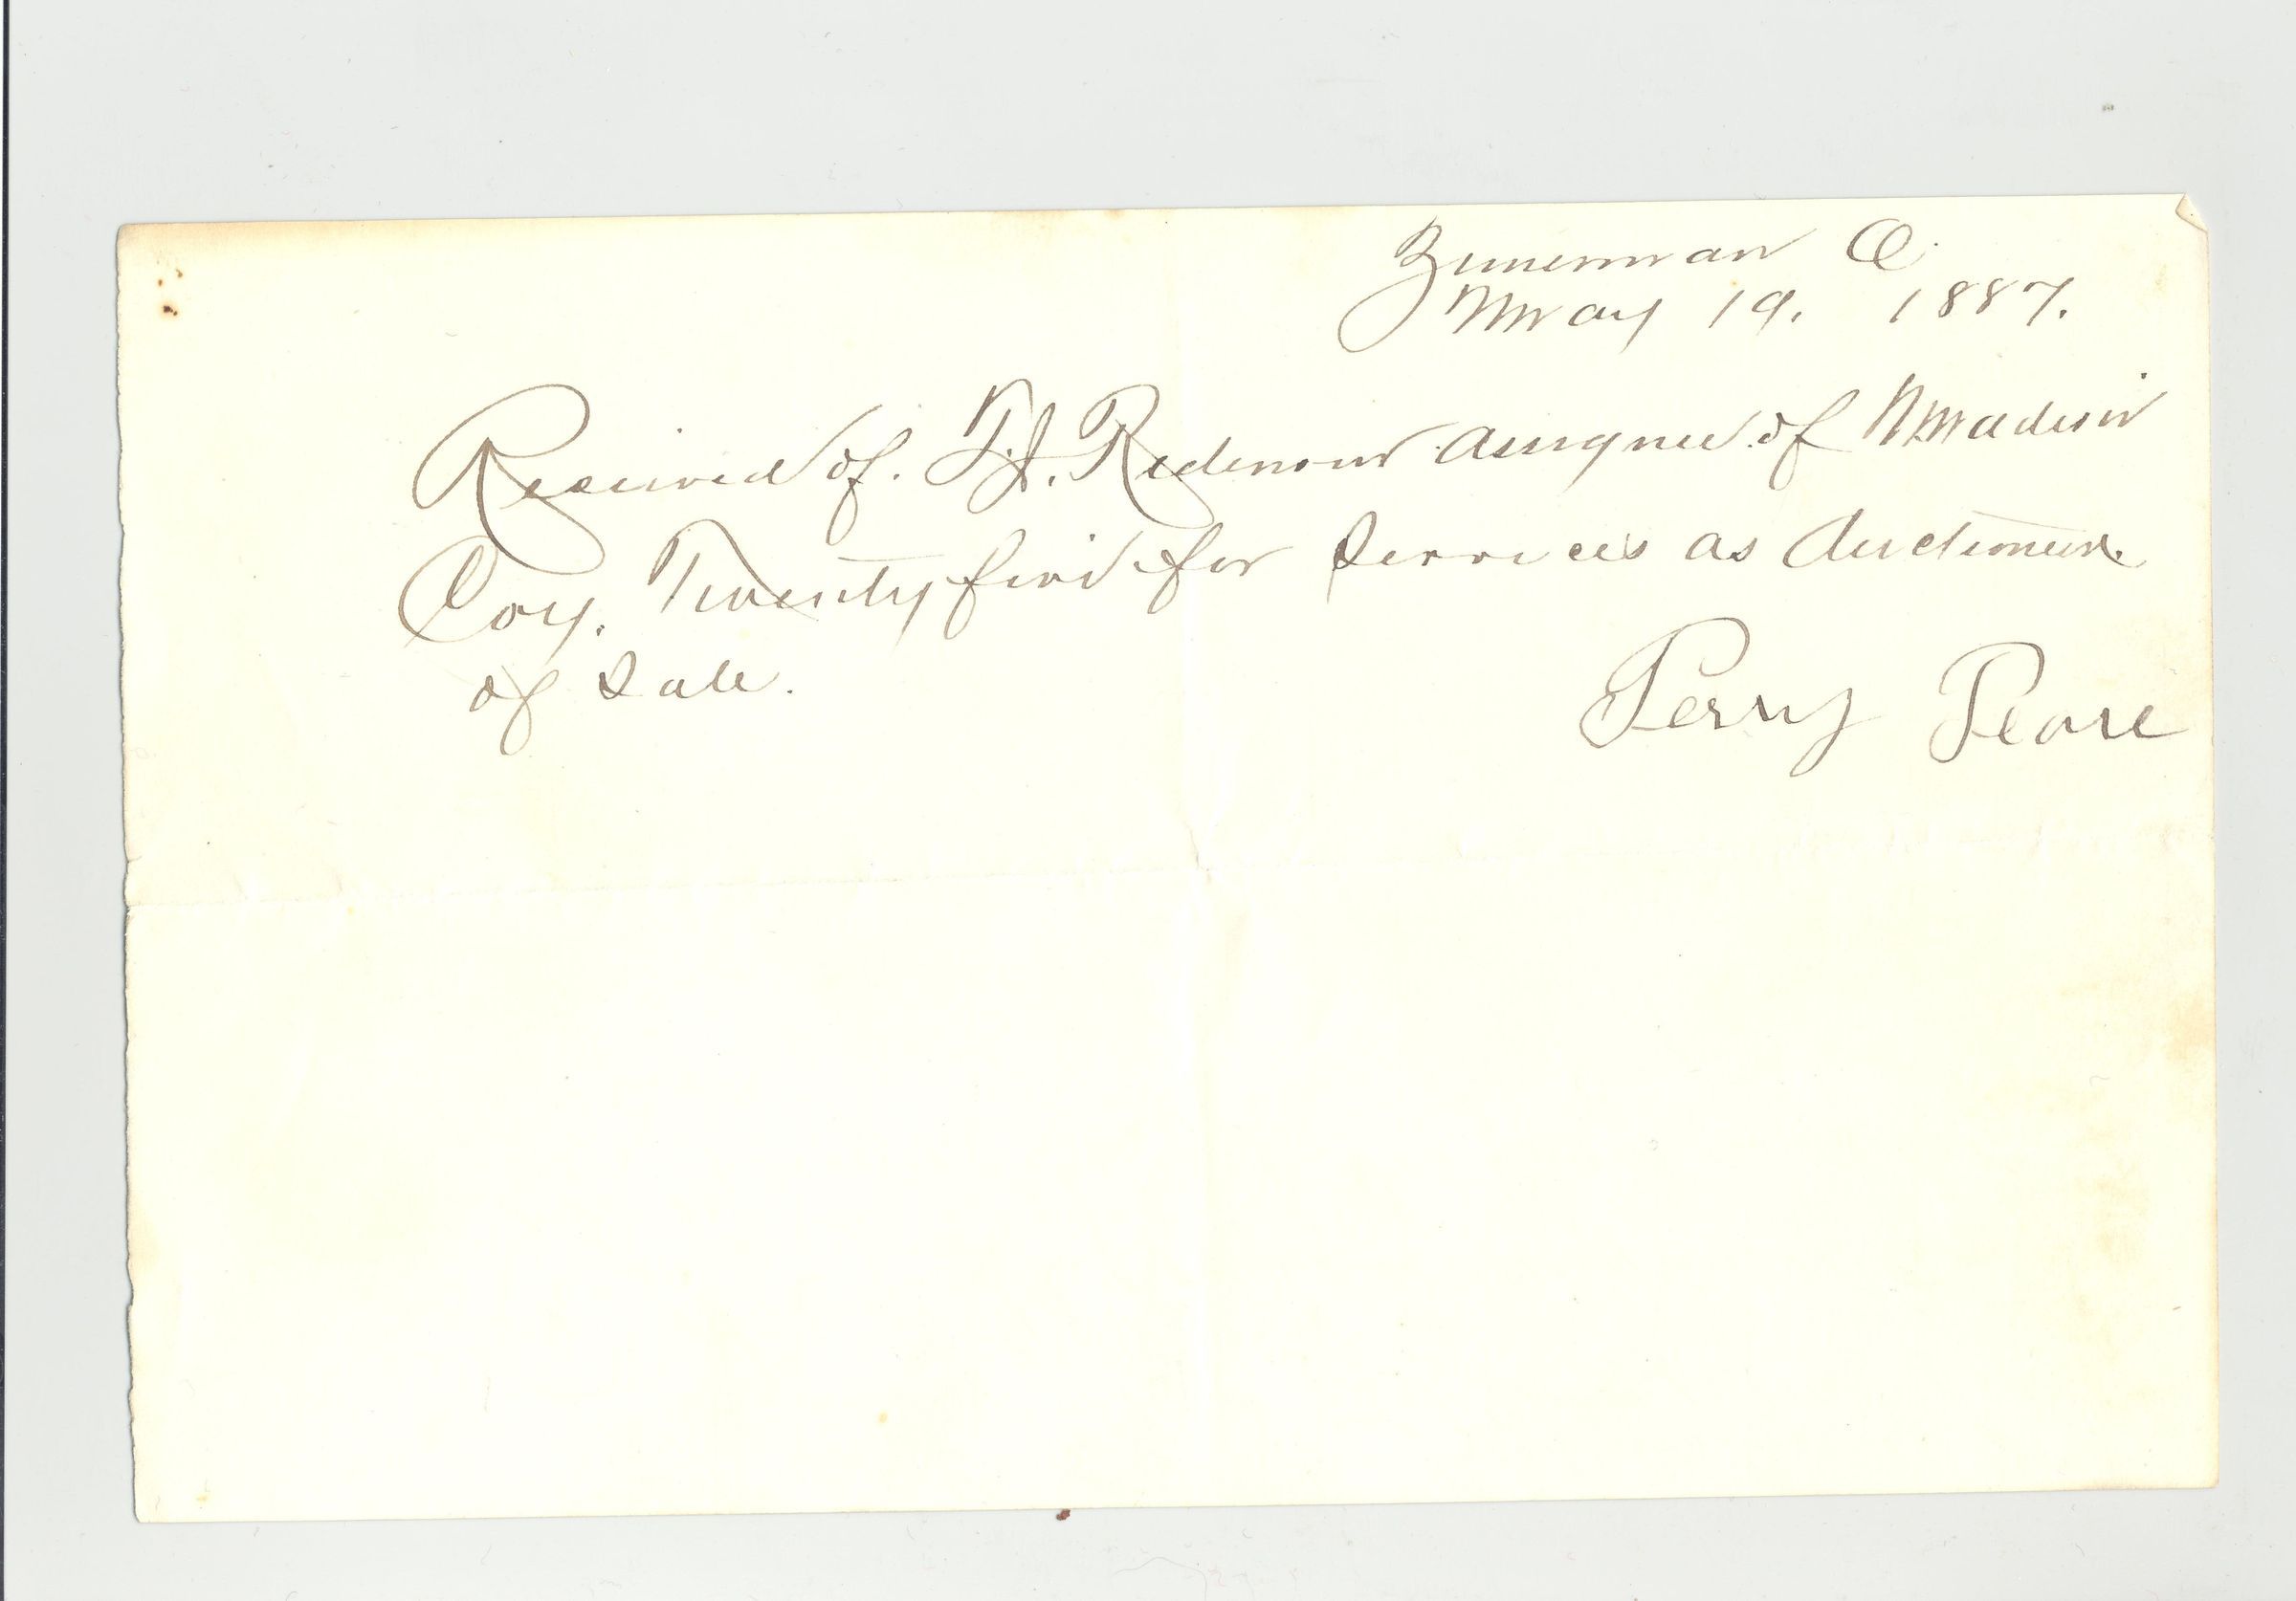 Zimmerman O.
May 19, 1887.
Received of. T.J. Ridenour assignee of Madison
Coy. Twenty five for services as Auctioneer
of Sale.
Perry Peare